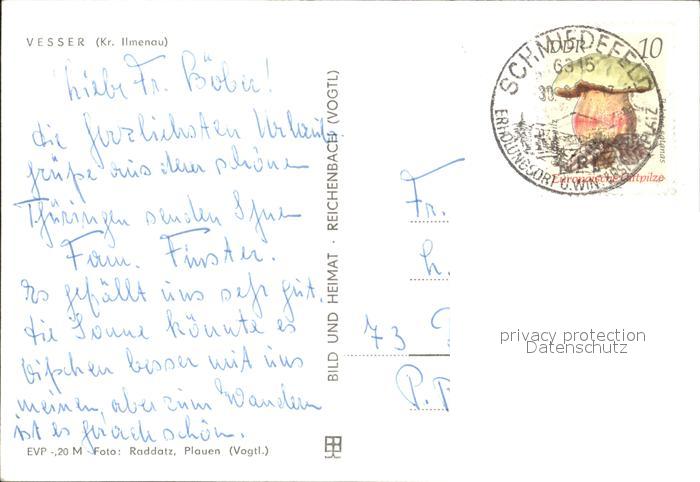 VESSER (Kr. Ilmenau)
Liebe Fr. Böber!
die herzlichsten Urlaubs-
grüße aus dem schönen
Thüringen senden Ihnen
Fam. Finster.
Es gefällt uns sehr gut.
die Sonne könnte es
bißchen besser mit uns
meinen, aber zum Wandern
ist es grade schön.
EVP -,20 M Foto: Raddatz, Plauen (Vogtl.)
BILD UND HEIMAT · REICHENBACH (VOGTL)
Fr.
h.
73
P.
DDR 10
Europäische Giftpilze
SCHMIEDEFELD
6315
30.
ERHOLUNGSORT U. WINTERSPORTPLATZ
privacy protection
Datenschutz